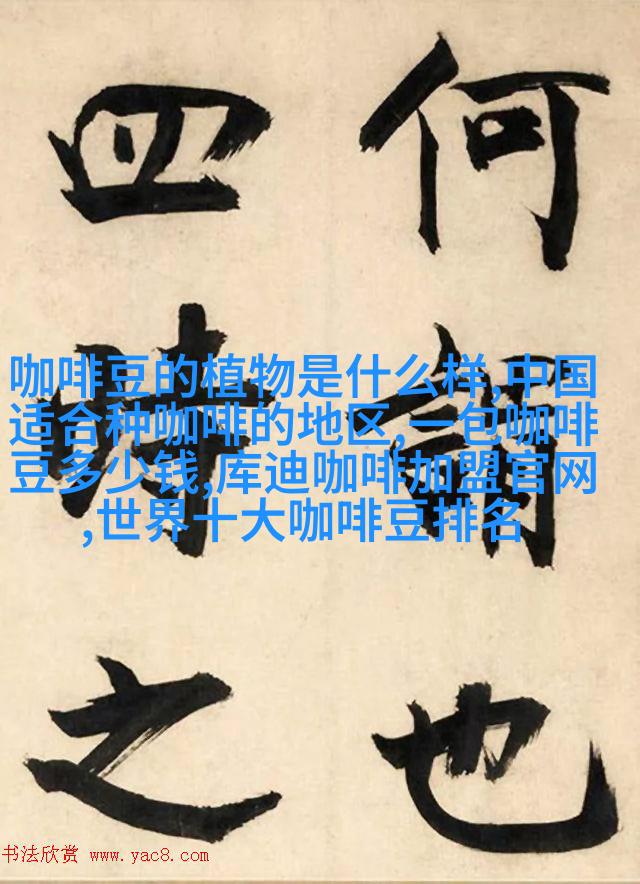 何謂也
四時之
咖啡豆的植物是什么样,中国
适合种咖啡的地区,一包咖啡
豆多少钱,库迪咖啡加盟官网
,世界十大咖啡豆排名
书法欣赏 www.yac8.com